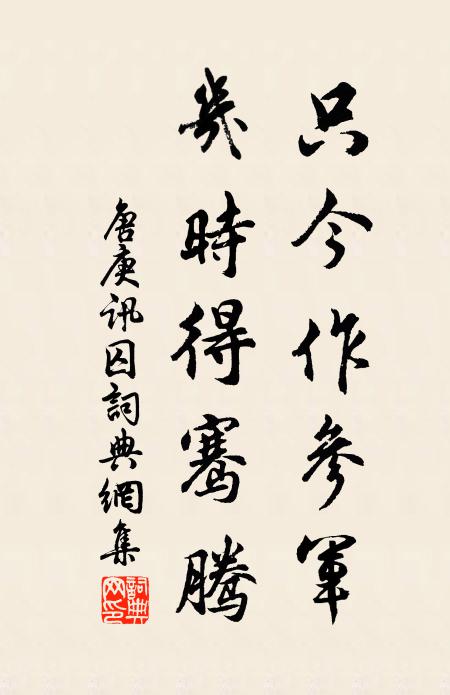 只今作參軍
幾時得騫騰
唐庚訊囚詞典網集
詞典
网印